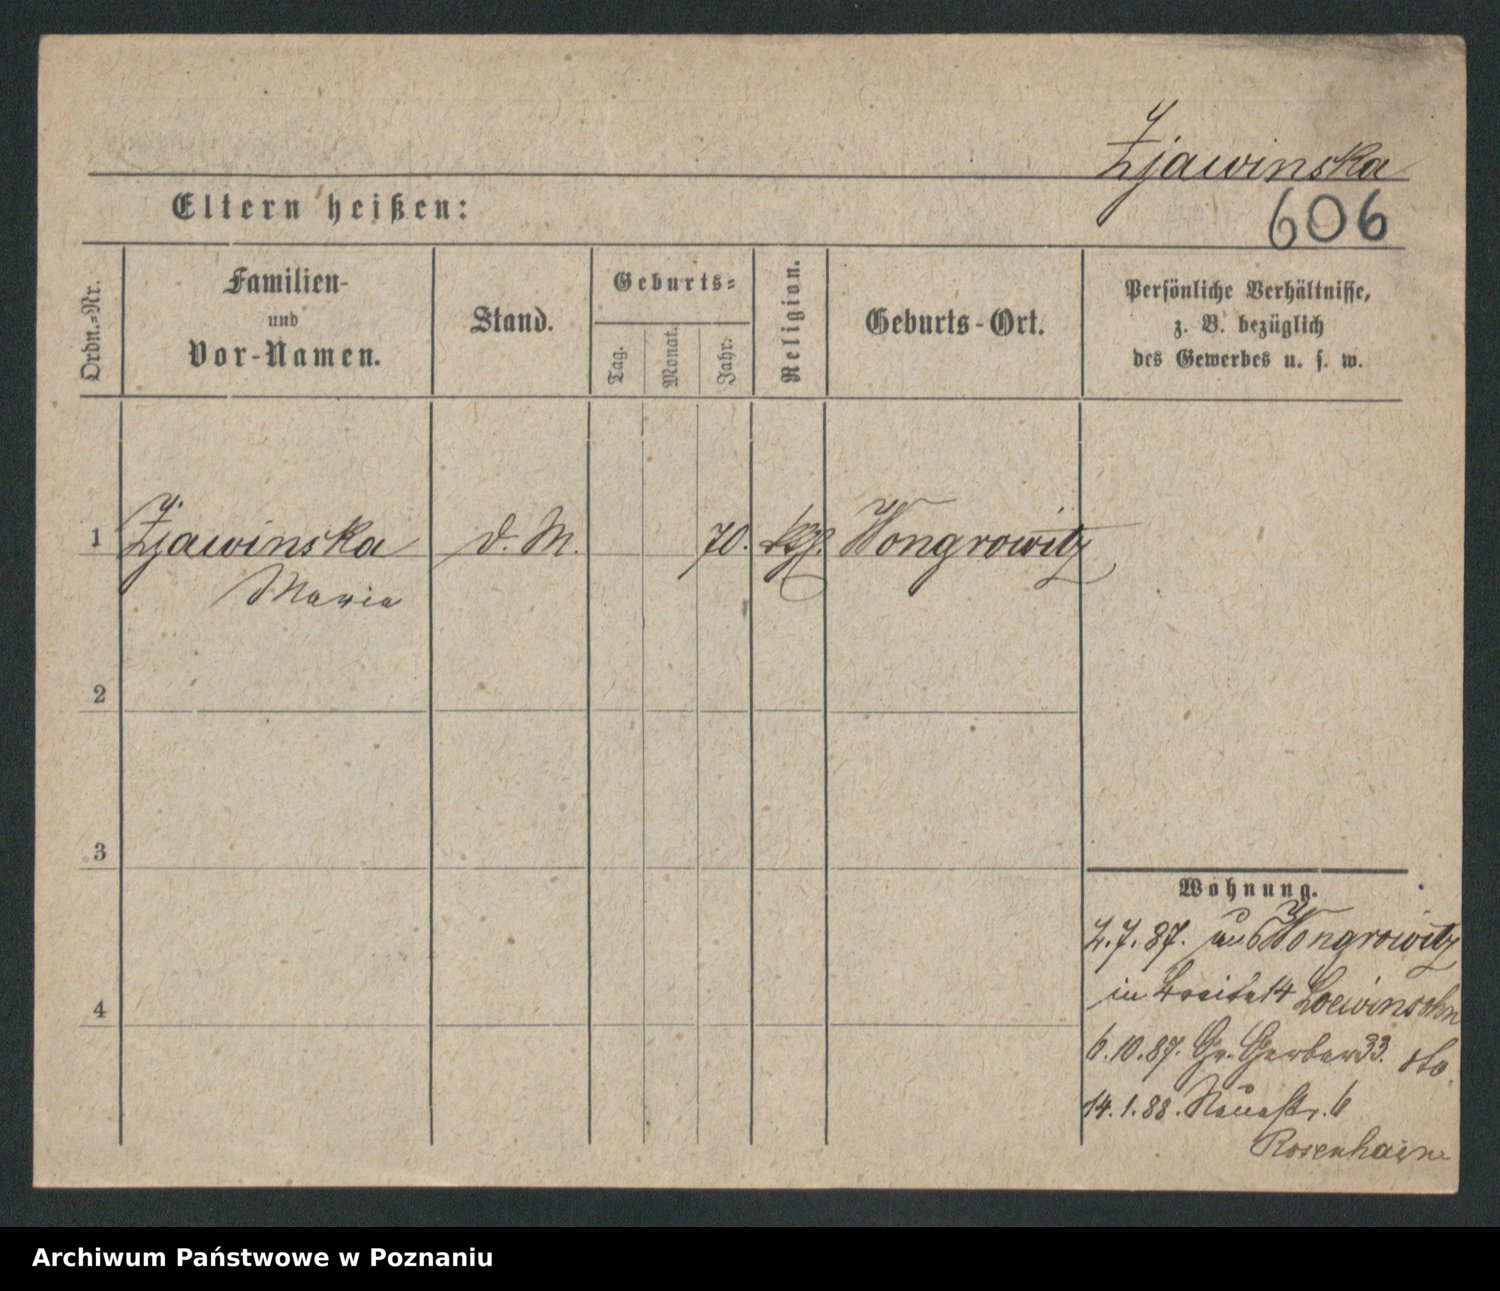 Zjawinska
606
Eltern heißen:
Ordn.-Nr.
Familien-
und
Vor-Namen.
Stand.
Geburts-
Tag.
Monat.
Jahr.
Religion.
Geburts-Ort.
Persönliche Verhältnisse,
z. B. bezüglich
des Gewerbes u. s. w.
1 Zjawinska d. M. 70. Wongrowitz
Maria
2
3
4
Wohnung.
2.7.87. aus Wongrowitz
in Breite 14 Loewinsohn
6.10.87. Gr. Gerber 33. sto.
14.1.88. Neuestr. 6
Rosenhain
Archiwum Państwowe w Poznaniu